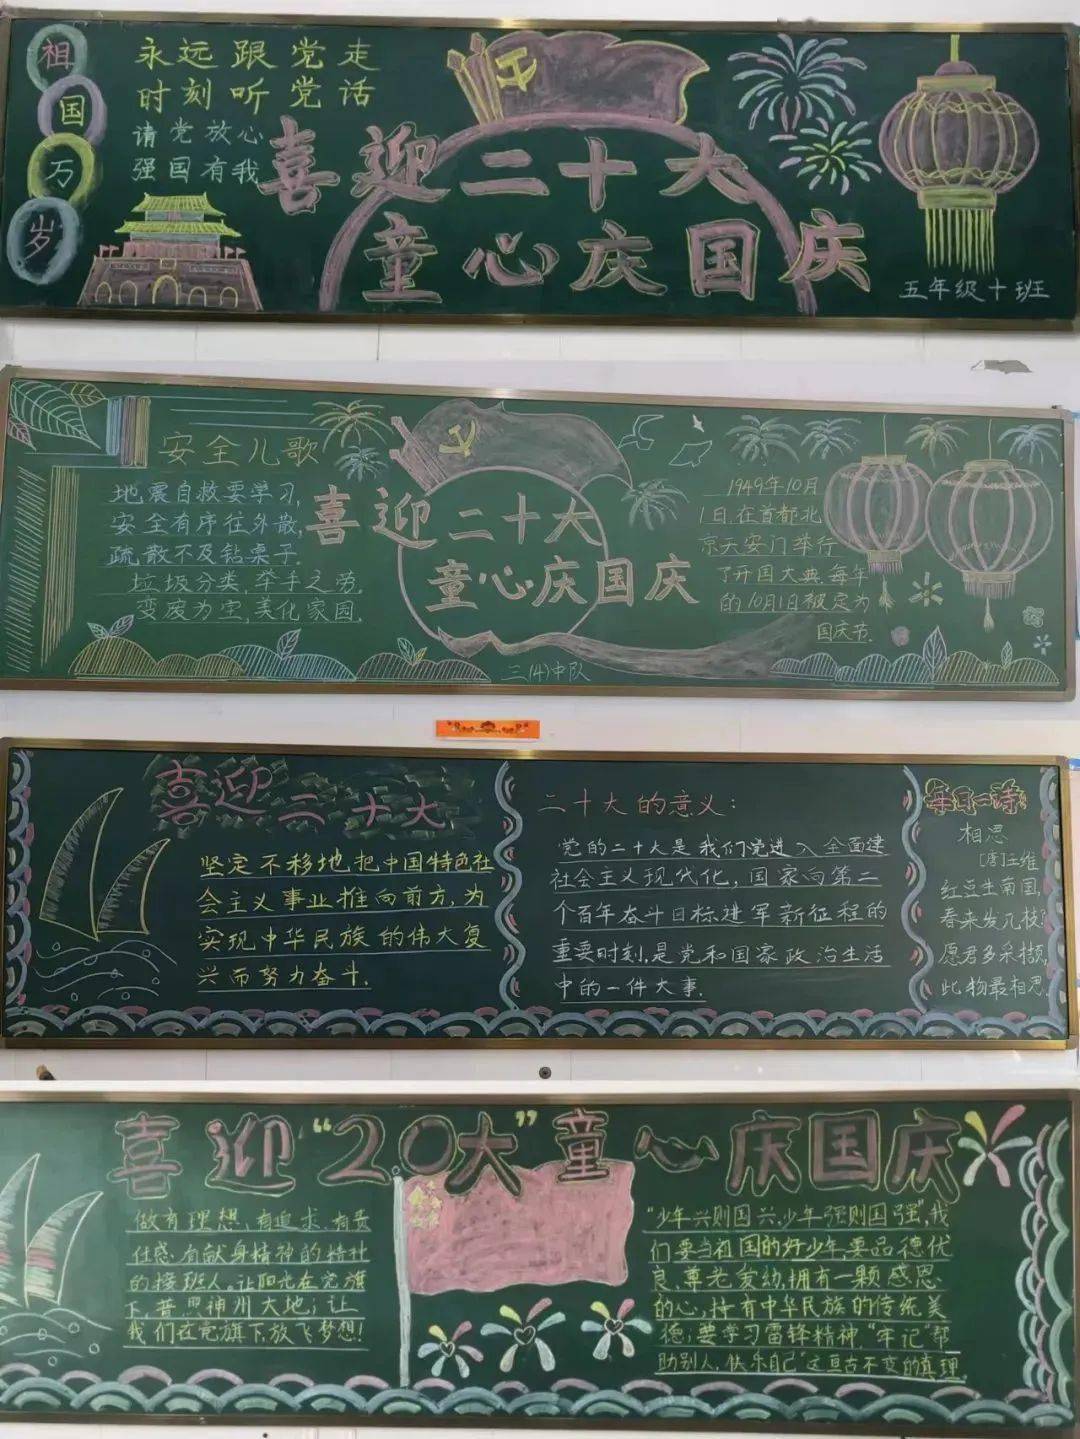 祖国万岁
永远跟党走
时刻听党话
请党放心
强国有我
喜迎二十大
童心庆国庆
五年级十班
安全儿歌
地震自救要学习,
安全有序往外散,
疏散不及钻桌子.
垃圾分类,举手之劳,
变废为宝,美化家园.
喜迎二十大
童心庆国庆
三(4)中队
1949年10月
1日,在首都北
京天安门举行
了开国大典.每年
的10月1日被定为
国庆节.
喜迎二十大
坚定不移地把中国特色社
会主义事业推向前方,为
实现中华民族的伟大复
兴而努力奋斗.
二十大的意义:
党的二十大是我们党进入全面建
社会主义现代化,国家向第二
个百年奋斗目标进军新征程的
重要时刻,是党和国家政治生活
中的一件大事.
每日一诗
相思
[唐]王维
红豆生南国,
春来发几枝?
愿君多采撷,
此物最相思.
喜迎“20大”童心庆国庆
做有理想,有追求,有责
任感,有献身精神的特种
的接班人。让阳光在党旗
下,普照神州大地;让
我们在党旗下放飞梦想!
“少年兴则国兴,少年强则国强”,我
们要当祖国的好少年,要品德优
良,尊老爱幼,拥有一颗感恩
的心,持有中华民族的传统美
德;要学习雷锋精神,“牢记”帮
助别人,快乐自己”这亘古不变的真理.